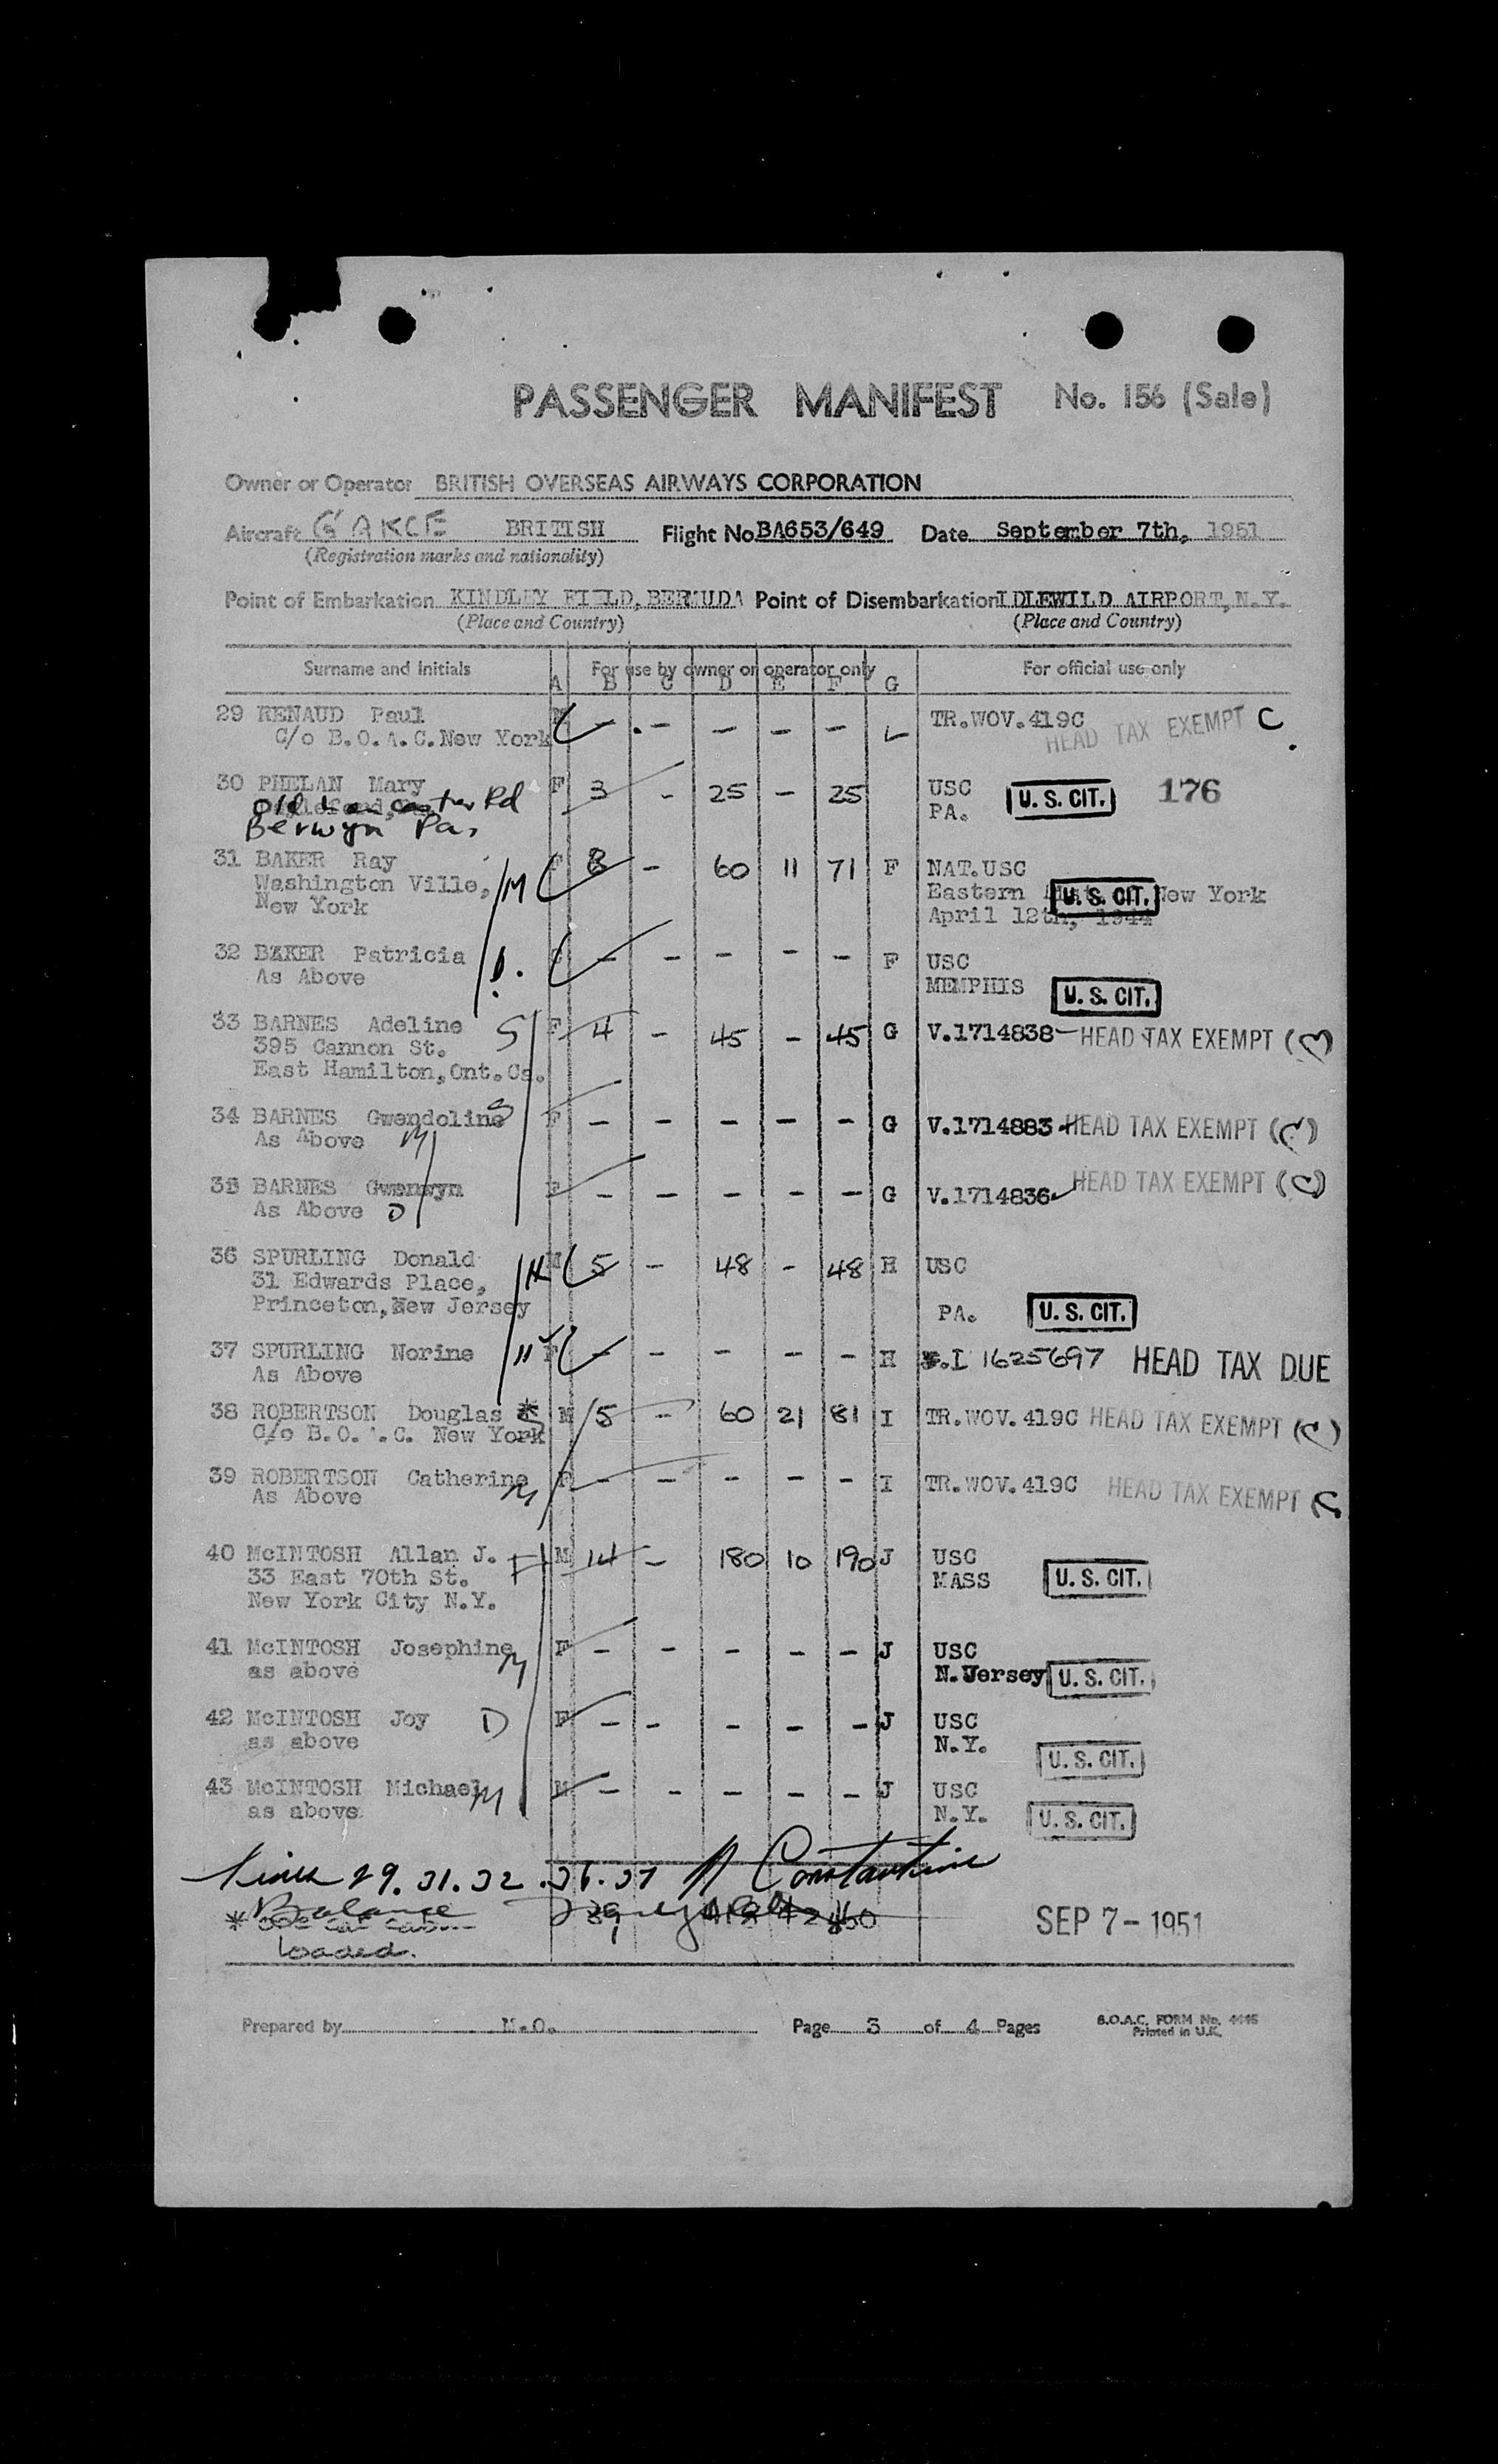 PASSENGER MANIFEST No. 156 (Sale)
Owner or Operator BRITISH OVERSEAS AIRWAYS CORPORATION
Aircraft G'AKCE BRITISH Flight No BA653/649 Date September 7th, 1951
(Registration marks and nationality)
Point of Embarkation KINDLEY FIELD, BERMUDA Point of Disembarkation IDLEWILD AIRPORT, N.Y.
(Place and Country) (Place and Country)
Surname and initials For use by owner or operator only For official use only
A B C D E F G
29 RENAUD Paul M - - - - - TR.WOV.419C
C/o B.O.A.C. New York HEAD TAX EXEMPT C
30 PHELAN Mary F 3 - 25 - 25 USC U. S. CIT. 176
Old Lancaster Rd PA.
Berwyn Pa.
31 BAKER Ray F 8 - 60 11 71 F NAT.USC
Washington Ville, M Eastern U. S. CIT. New York
New York April 12th, 1944
32 BAKER Patricia - - - - - F USC
As Above D. MEMPHIS U. S. CIT.
33 BARNES Adeline S F 4 - 45 - 45 G V.1714838 HEAD TAX EXEMPT (C)
395 Cannon St.
East Hamilton, Ont. Ca.
34 BARNES Gwendoline S F - - - - - G V.1714883 HEAD TAX EXEMPT (C)
As Above M
35 BARNES Gwenwyn F - - - - - G V.1714836 HEAD TAX EXEMPT (C)
As Above D
36 SPURLING Donald M 5 - 48 - 48 H USC
31 Edwards Place, H
Princeton, New Jersey PA. U. S. CIT.
37 SPURLING Norine F - - - - - H I 1625697 HEAD TAX DUE
As Above
38 ROBERTSON Douglas * M 5 - 60 21 81 I TR.WOV.419C HEAD TAX EXEMPT (C)
C/o B.O. .C. New York
39 ROBERTSON Catherine F - - - - - I TR.WOV.419C HEAD TAX EXEMPT C
As Above M
40 McINTOSH Allan J. M 14 - 180 10 190 J USC
33 East 70th St. MASS U. S. CIT.
New York City N.Y.
41 McINTOSH Josephine F - - - - - J USC
as above M N.Jersey U. S. CIT.
42 McINTOSH Joy D F - - - - - J USC
as above N.Y. U. S. CIT.
43 McINTOSH Michael M M - - - - - J USC
as above N.Y. U. S. CIT.
Lines 29. 31. 32. 36. 37 Constantine
Balance
* 39 418 42 460 SEP 7 - 1951
loaded.
Prepared by M.O. Page 3 of 4 Pages B.O.A.C. FORM No. 4445
Printed in U.K.